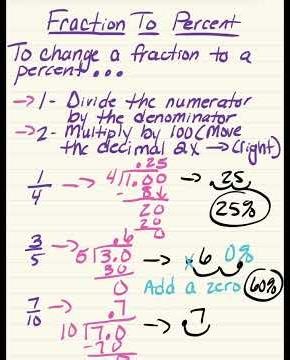 Fraction To Percent
To change a fraction to a
percent...
→ 1- Divide the numerator
by the denominator
→ 2- Multiply by 100 (Move
the decimal 2x → (right)
1/4 → 4)1.00 .25 → .25
- 8↓
20
20
0
25%
3/5 → 5)3.0 .6 → .60%
30
0
Add a zero 60%
7/10 → 10)7.0 .7 → .7
- 70